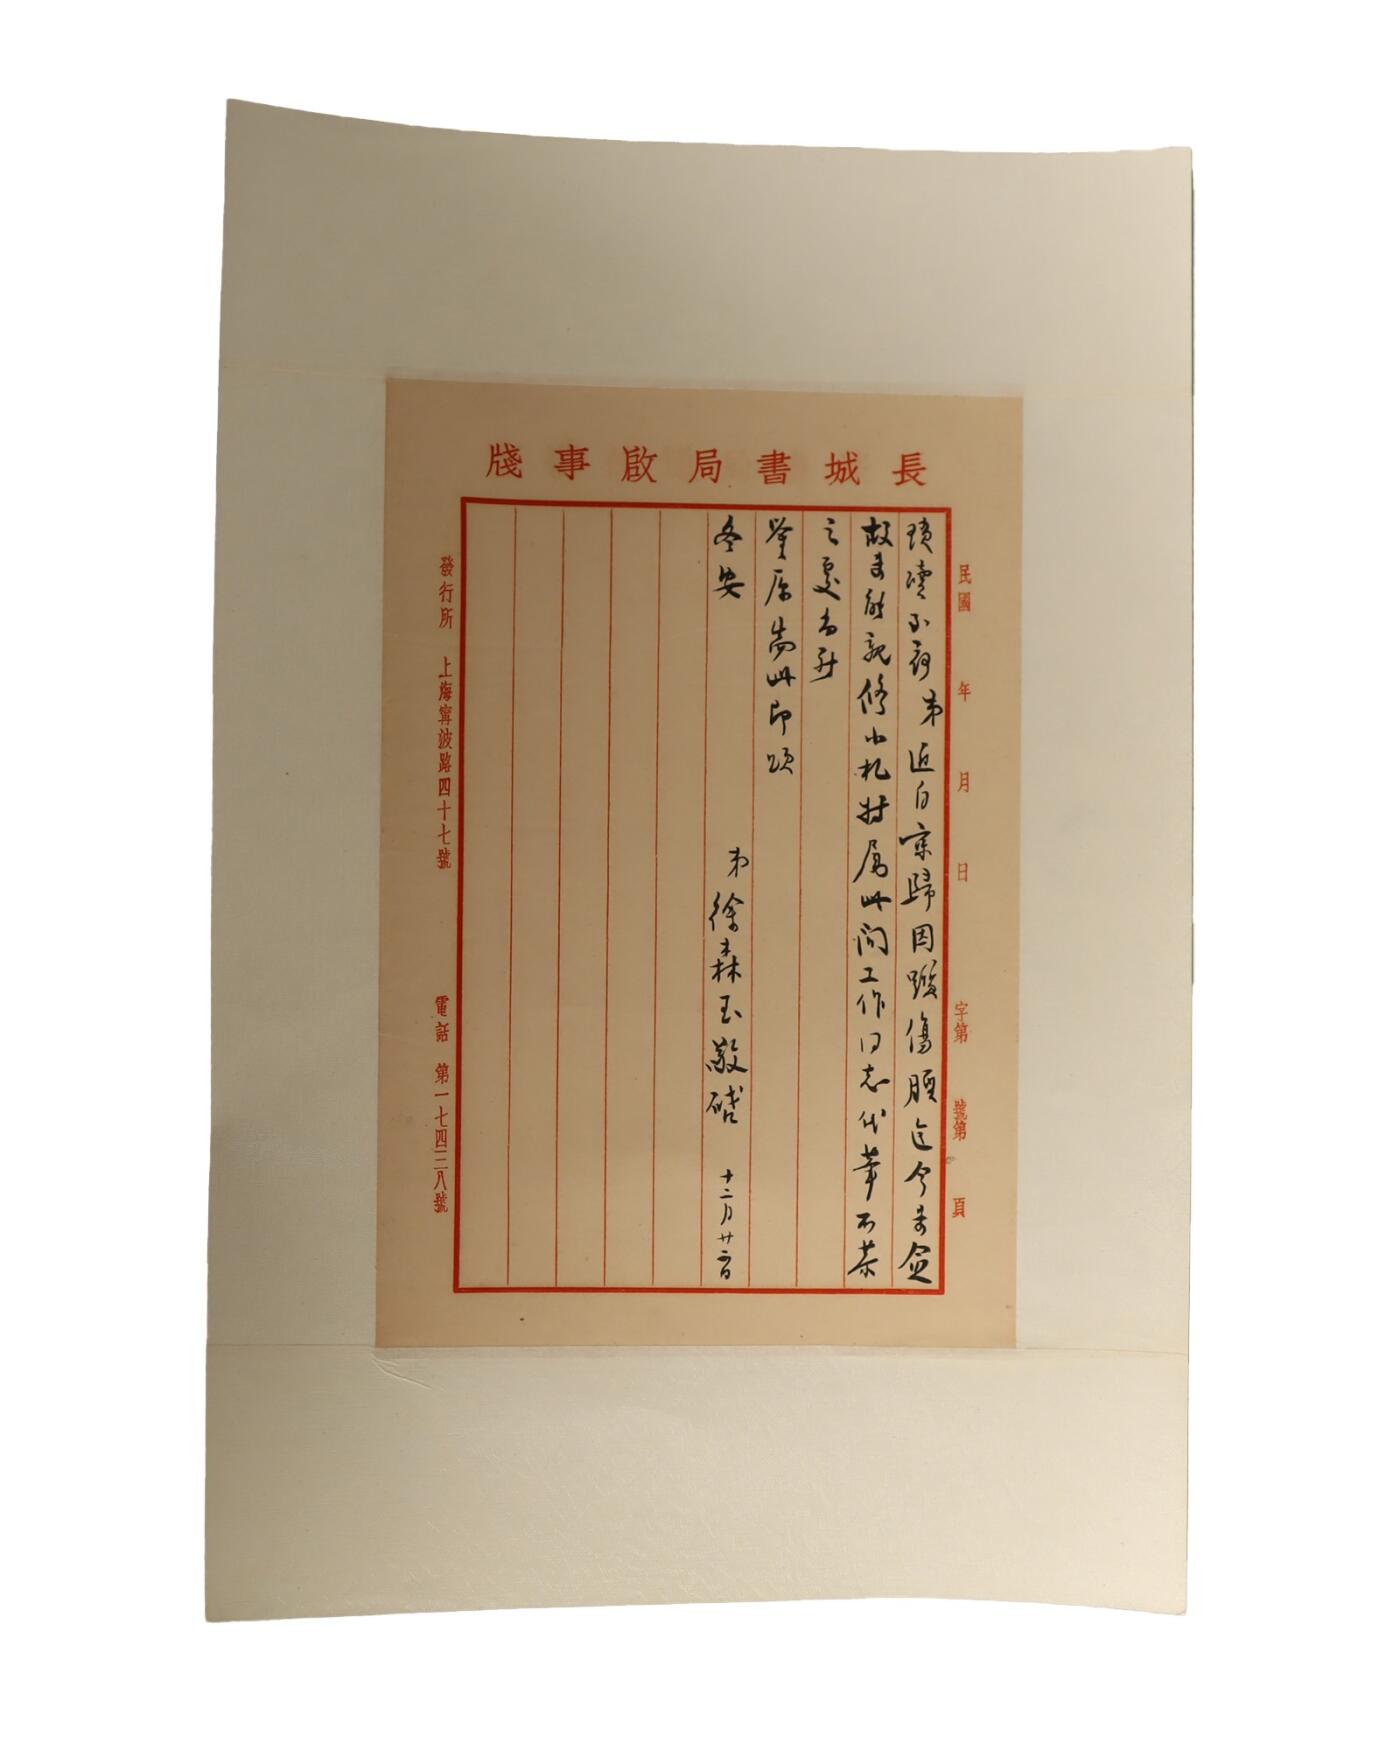 長城書局啟事牋
民國 年 月 日 字第 號第 頁
瑣瀆不罪弟近自京歸因蹴傷腰迄今未愈
故未能親修小札特屬此間工作同志代筆不恭
之處尚祈
鑒原耑此即頌
冬安
弟徐森玉敬啟 十二月廿二日
發行所 上海寧波路四十七號 電話 第一七四三八號